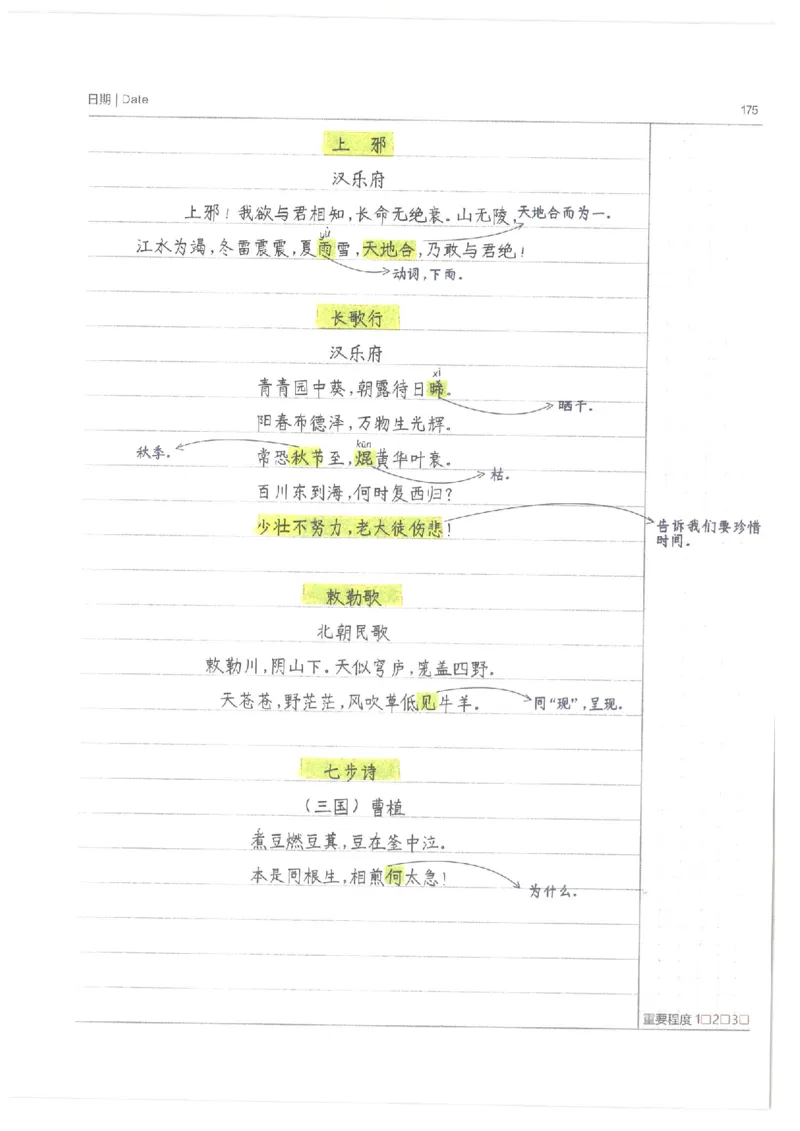 日期 | Date
175
上 邪
汉乐府
上邪！我欲与君相知，长命无绝衰。山无陵，
天地合而为一。
yù
江水为竭，冬雷震震，夏雨雪，天地合，乃敢与君绝！
动词，下雨。
长歌行
汉乐府
xī
青青园中葵，朝露待日晞。
晒干。
阳春布德泽，万物生光辉。
秋季。
kūn
常恐秋节至，焜黄华叶衰。
枯。
百川东到海，何时复西归？
少壮不努力，老大徒伤悲！
告诉我们要珍惜
时间。
敕勒歌
北朝民歌
敕勒川，阴山下。天似穹庐，笼盖四野。
天苍苍，野茫茫，风吹草低见牛羊。
同“现”，呈现。
七步诗
（三国）曹植
煮豆燃豆萁，豆在釜中泣。
本是同根生，相煎何太急！
为什么。
重要程度 1□2□3□